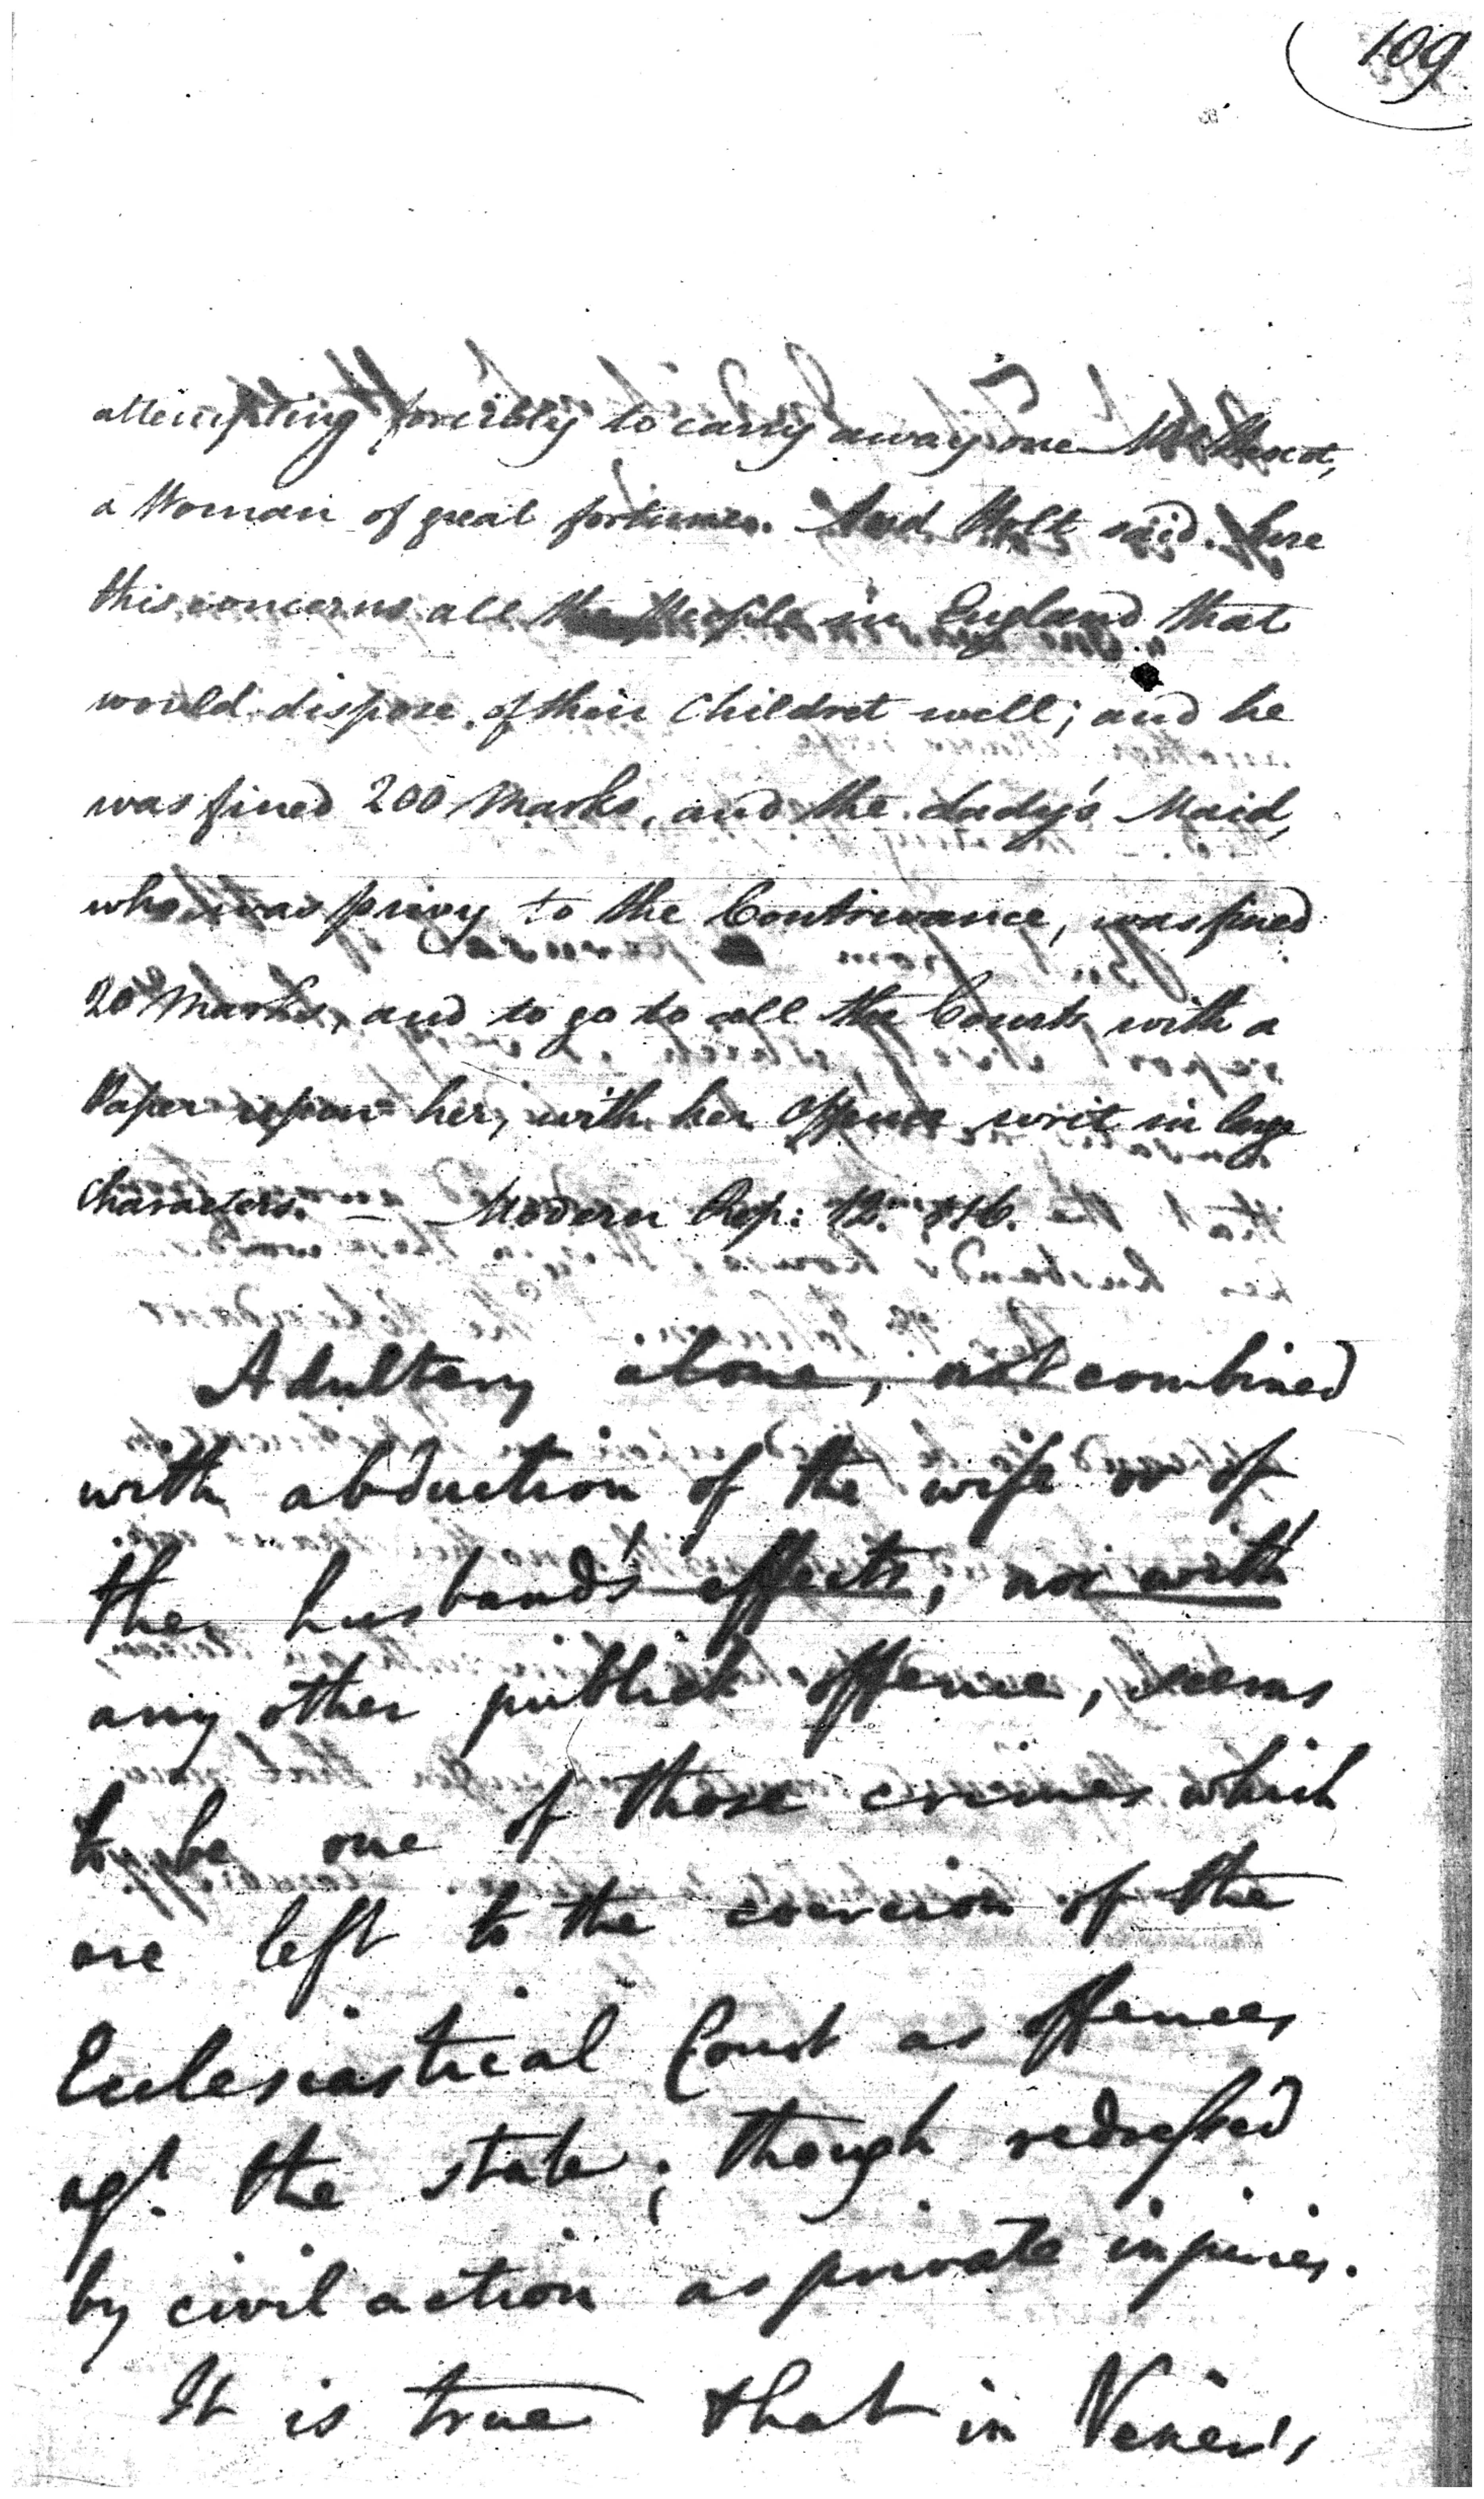 109
attempting forcibly to carry away one
a Woman of great fortune. And Holt said. Sure
this concerns all the People in England that
would dispose of their Childret well; and he
was fined 200 Marks, and the Lady's Maid,
who was privy to the Contrivance, was fined
20 Marks, and to go to all the Courts, with a
Paper upon her, with her Offence writ in large
Characters. — Modern Rep: 12.
Adultery alone, not combined
with abduction of the wife or of
the husband's effects, nor with
any other publick offence, seems
to be one of those crimes which
are left to the coercion of the
Ecclesiastical Court as offences
agt. the state; though redressed
by civil action as private injuries.
It is true that in Vener's